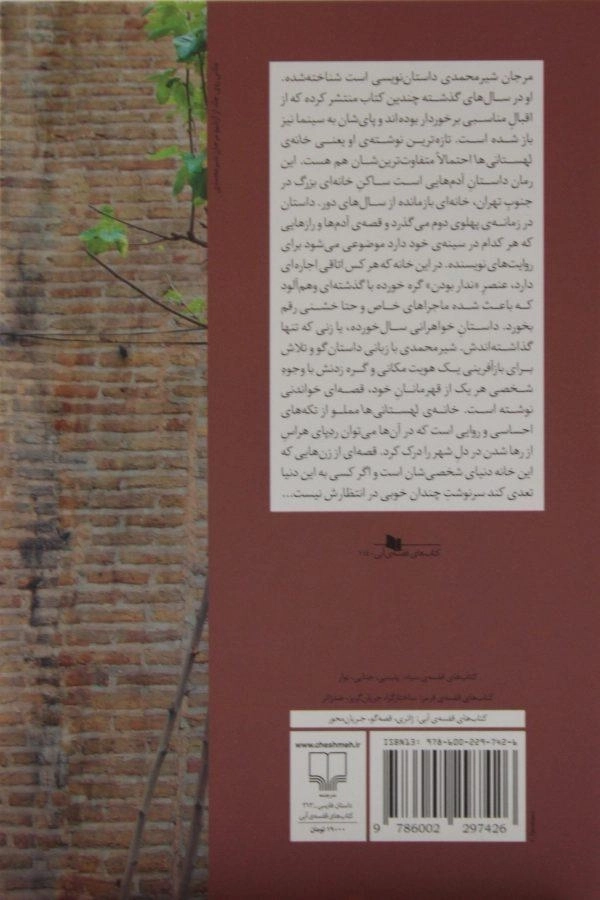 مرجان شیرمحمدی داستان‌نویسی است شناخته‌شده.
او در سال‌های گذشته چندین کتاب منتشر کرده که از
اقبالِ مناسبی برخوردار بوده‌اند و پای‌شان به سینما نیز
باز شده است. تازه‌ترین نوشته‌ی او یعنی خانه‌ی
لهستانی‌ها احتمالاً متفاوت‌ترین‌شان هم هست. این
رمان داستانِ آدم‌هایی است ساکنِ خانه‌ای بزرگ در
جنوبِ تهران، خانه‌ای بازمانده از سال‌های دور. داستان
در زمانه‌ی پهلوی دوم می‌گذرد و قصه‌ی آدم‌ها و رازهایی
که هر کدام در سینه‌ی خود دارد موضوعی می‌شود برای
روایت‌های نویسنده. در این خانه که هر کس اتاقی اجاره‌ای
دارد، عنصرِ «ندار بودن» گره خورده با گذشته‌ای وهم‌آلود
که باعث شده ماجراهای خاص و حتا خشنی رقم
بخورد. داستانِ خواهرانی سال‌خورده، یا زنی که تنها
گذاشته‌اندش. شیرمحمدی با زبانی داستان‌گو و تلاش
برای بازآفرینی یک هویت مکانی و گره زدنش با وجوهِ
شخصی هر یک از قهرمانانِ خود، قصه‌ای خواندنی
نوشته است. خانه‌ی لهستانی‌ها مملو از تکه‌های
احساسی و روایی است که در آن‌ها می‌توان ردپای هراسِ
از رها شدن در دلِ شهر را درک کرد. قصه‌ای از زن‌هایی که
این خانه دنیای شخصی‌شان است و اگر کسی به این دنیا
تعدی کند سرنوشتِ چندان خوبی در انتظارش نیست...
کتاب‌های قفسه‌ی آبی
کتاب‌های قفسه‌ی سیاه: پلیسی، جنایی، نوار
کتاب‌های قفسه‌ی قرمز: ساختارگرا، جریان‌گریز، ضدژانر
کتاب‌های قفسه‌ی آبی: ژانری، قصه‌گو، جریان‌محور
www.cheshmeh.ir
نشرچشمه
داستان فارسی ـ ۲۱۳
کتاب‌های قفسه‌ی آبی
۱۹۰۰۰ تومان
ISBN13: 978-600-229-742-6
9 786002 297426